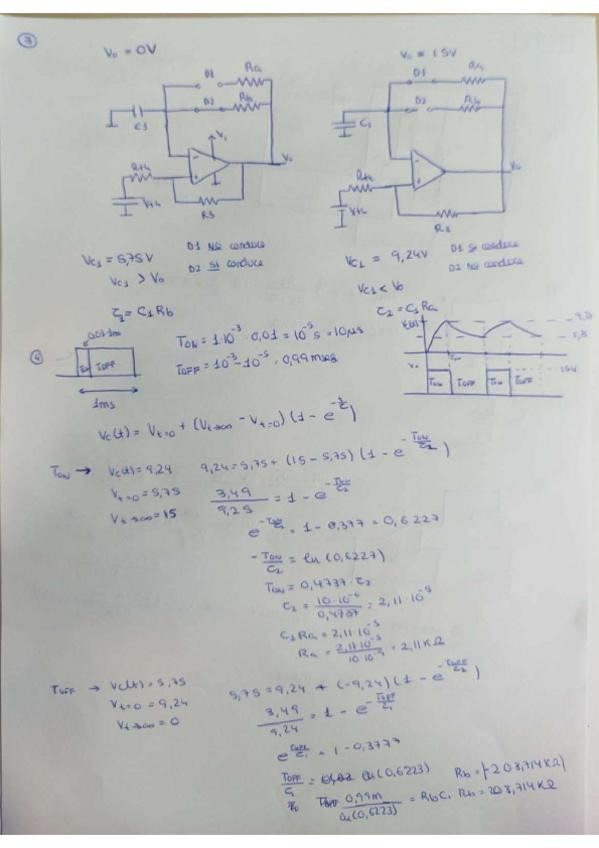 3
V₀ = 0V
V₀ = 15V
D1 Ra
D2 Rb
C1
V₁
V₀
R3
D1 Ra
D2
C1
V₀
R3
VC1 = 5,75V D1 No conduce
VC1 > V₀ D2 Si conduce
VC1 = 9,24V D1 Si conduce
VC1 < V₀ D2 No conduce
τ₁ = C1 Rb
τ₂ = C1 Ra
4
0,01·1ms
TOFF
1ms
TON = 1·10⁻³ · 0,01 = 10⁻⁵ s = 10μs
TOFF = 10⁻³ - 10⁻⁵ = 0,99 mseg
TON TOFF TON TOFF
15V
Vc(t) = Vt=0 + (Vt→∞ - Vt=0) (1 - e^(-t/τ))
TON → Vc(t) = 9,24 9,24 = 5,75 + (15 - 5,75) (1 - e^(-TON/τ₂))
Vt=0 = 5,75 3,49/9,25 = 1 - e^(-TON/τ₂)
Vt→∞ = 15
e^(-TON/τ₂) = 1 - 0,377 = 0,6227
-TON/τ₂ = ln(0,6227)
TON = 0,4737 · τ₂
τ₂ = 10·10⁻⁶/0,4737 = 2,11·10⁻⁵
C1 Ra = 2,11·10⁻⁵
Ra = 2,11·10⁻⁵/10·10⁻⁹ = 2,11 KΩ
TOFF → Vc(t) = 5,75 5,75 = 9,24 + (-9,24) (1 - e^(-TOFF/τ₂))
Vt=0 = 9,24 3,49/9,24 = 1 - e^(-TOFF/τ₁)
Vt→∞ = 0
e^(TOFF/τ₁) = 1 - 0,3777
TOFF/τ₁ = ln(0,6223) Rb = |-208,714KΩ|
0,99m/ln(0,6223) = Rb C1 Rb = 208,714KΩ